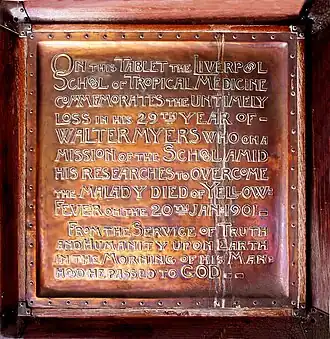 On this Tablet the Liverpool
School of Tropical Medicine
commemorates the untimely
loss in his 29th year of–
Walter Myers who on a
mission of the School amid
his researches to overcome
the malady died of Yellow–
Fever on the 20th Jan. 1901–
From the Service of Truth
and Humanity upon Earth
in the Morning of his Man-
hood he passed to GOD.–